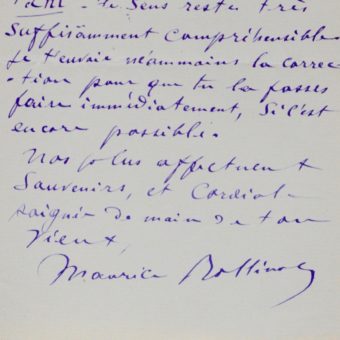 tant - le sens reste très
suffisamment compréhensible.
Je t'envoie néammains la correc
-tion pour que tu la fasses
faire immédiatement, si c'est
encore possible.
Nos plus affectueux
Souvenirs, et Cordiale
poignée de main de ton
vieux,
Maurice Rollinat